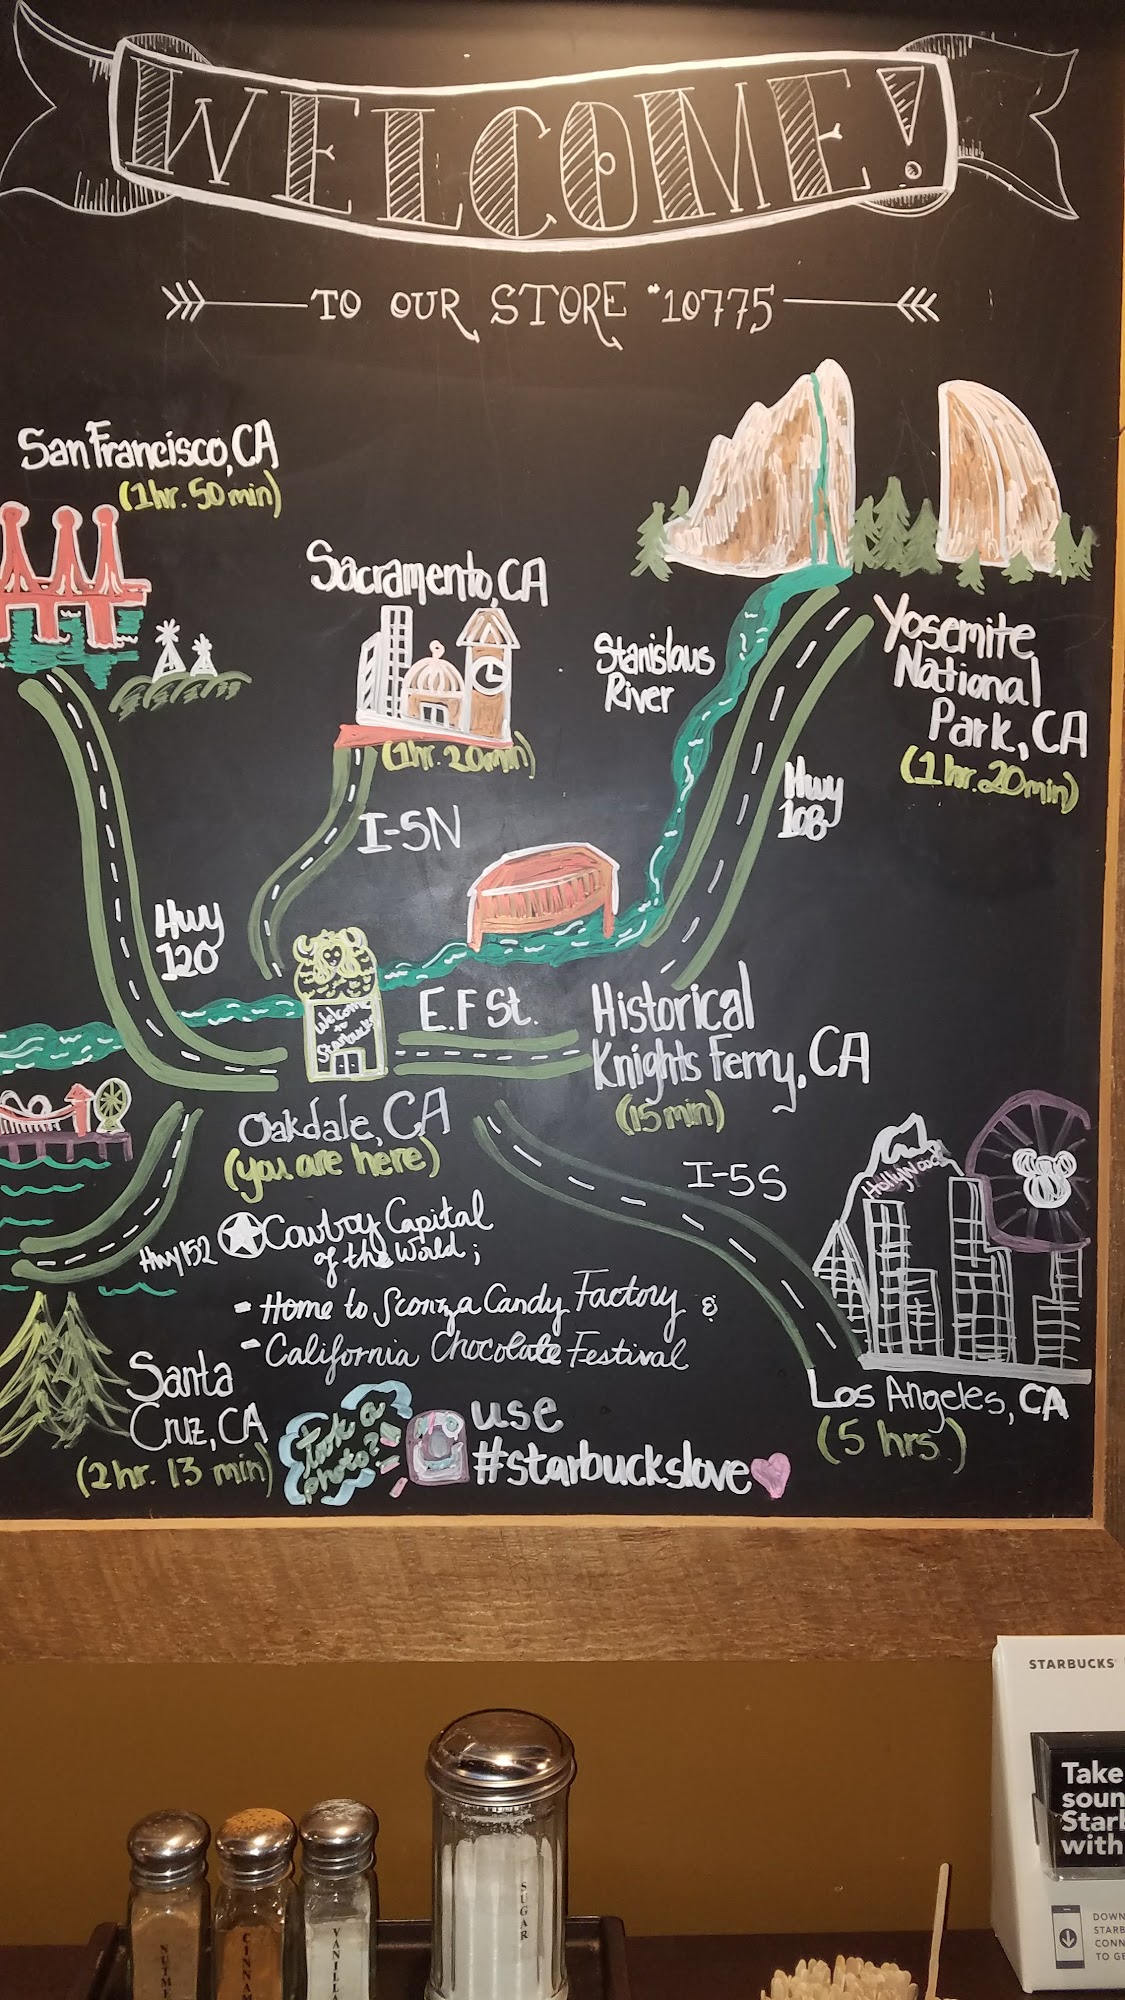 WELCOME!
TO OUR STORE #10775
San Francisco, CA
(1hr. 50 min)
Sacramento, CA
(1hr. 20min)
I-5N
Stanislous
River
Yosemite
National
Park, CA
(1 hr. 20min)
Hwy
108
Hwy
120
Welcome
to
Starbucks
E. F St.
Historical
Knights Ferry, CA
(15 min)
Oakdale, CA
(you are here)
I-5S
Hollywood
Hwy 152
Cowboy Capital
of the World;
- Home to Sconza Candy Factory &
- California Chocolate Festival
Santa
Cruz, CA
(2 hr. 13 min)
Los Angeles, CA
(5 hrs.)
take a
photo?
use
#starbuckslove
STARBUCKS
Take
soun
Starb
with
DOWN
STARB
CONN
TO GE
NUTME
CINNAM
VANILLA
SUGAR